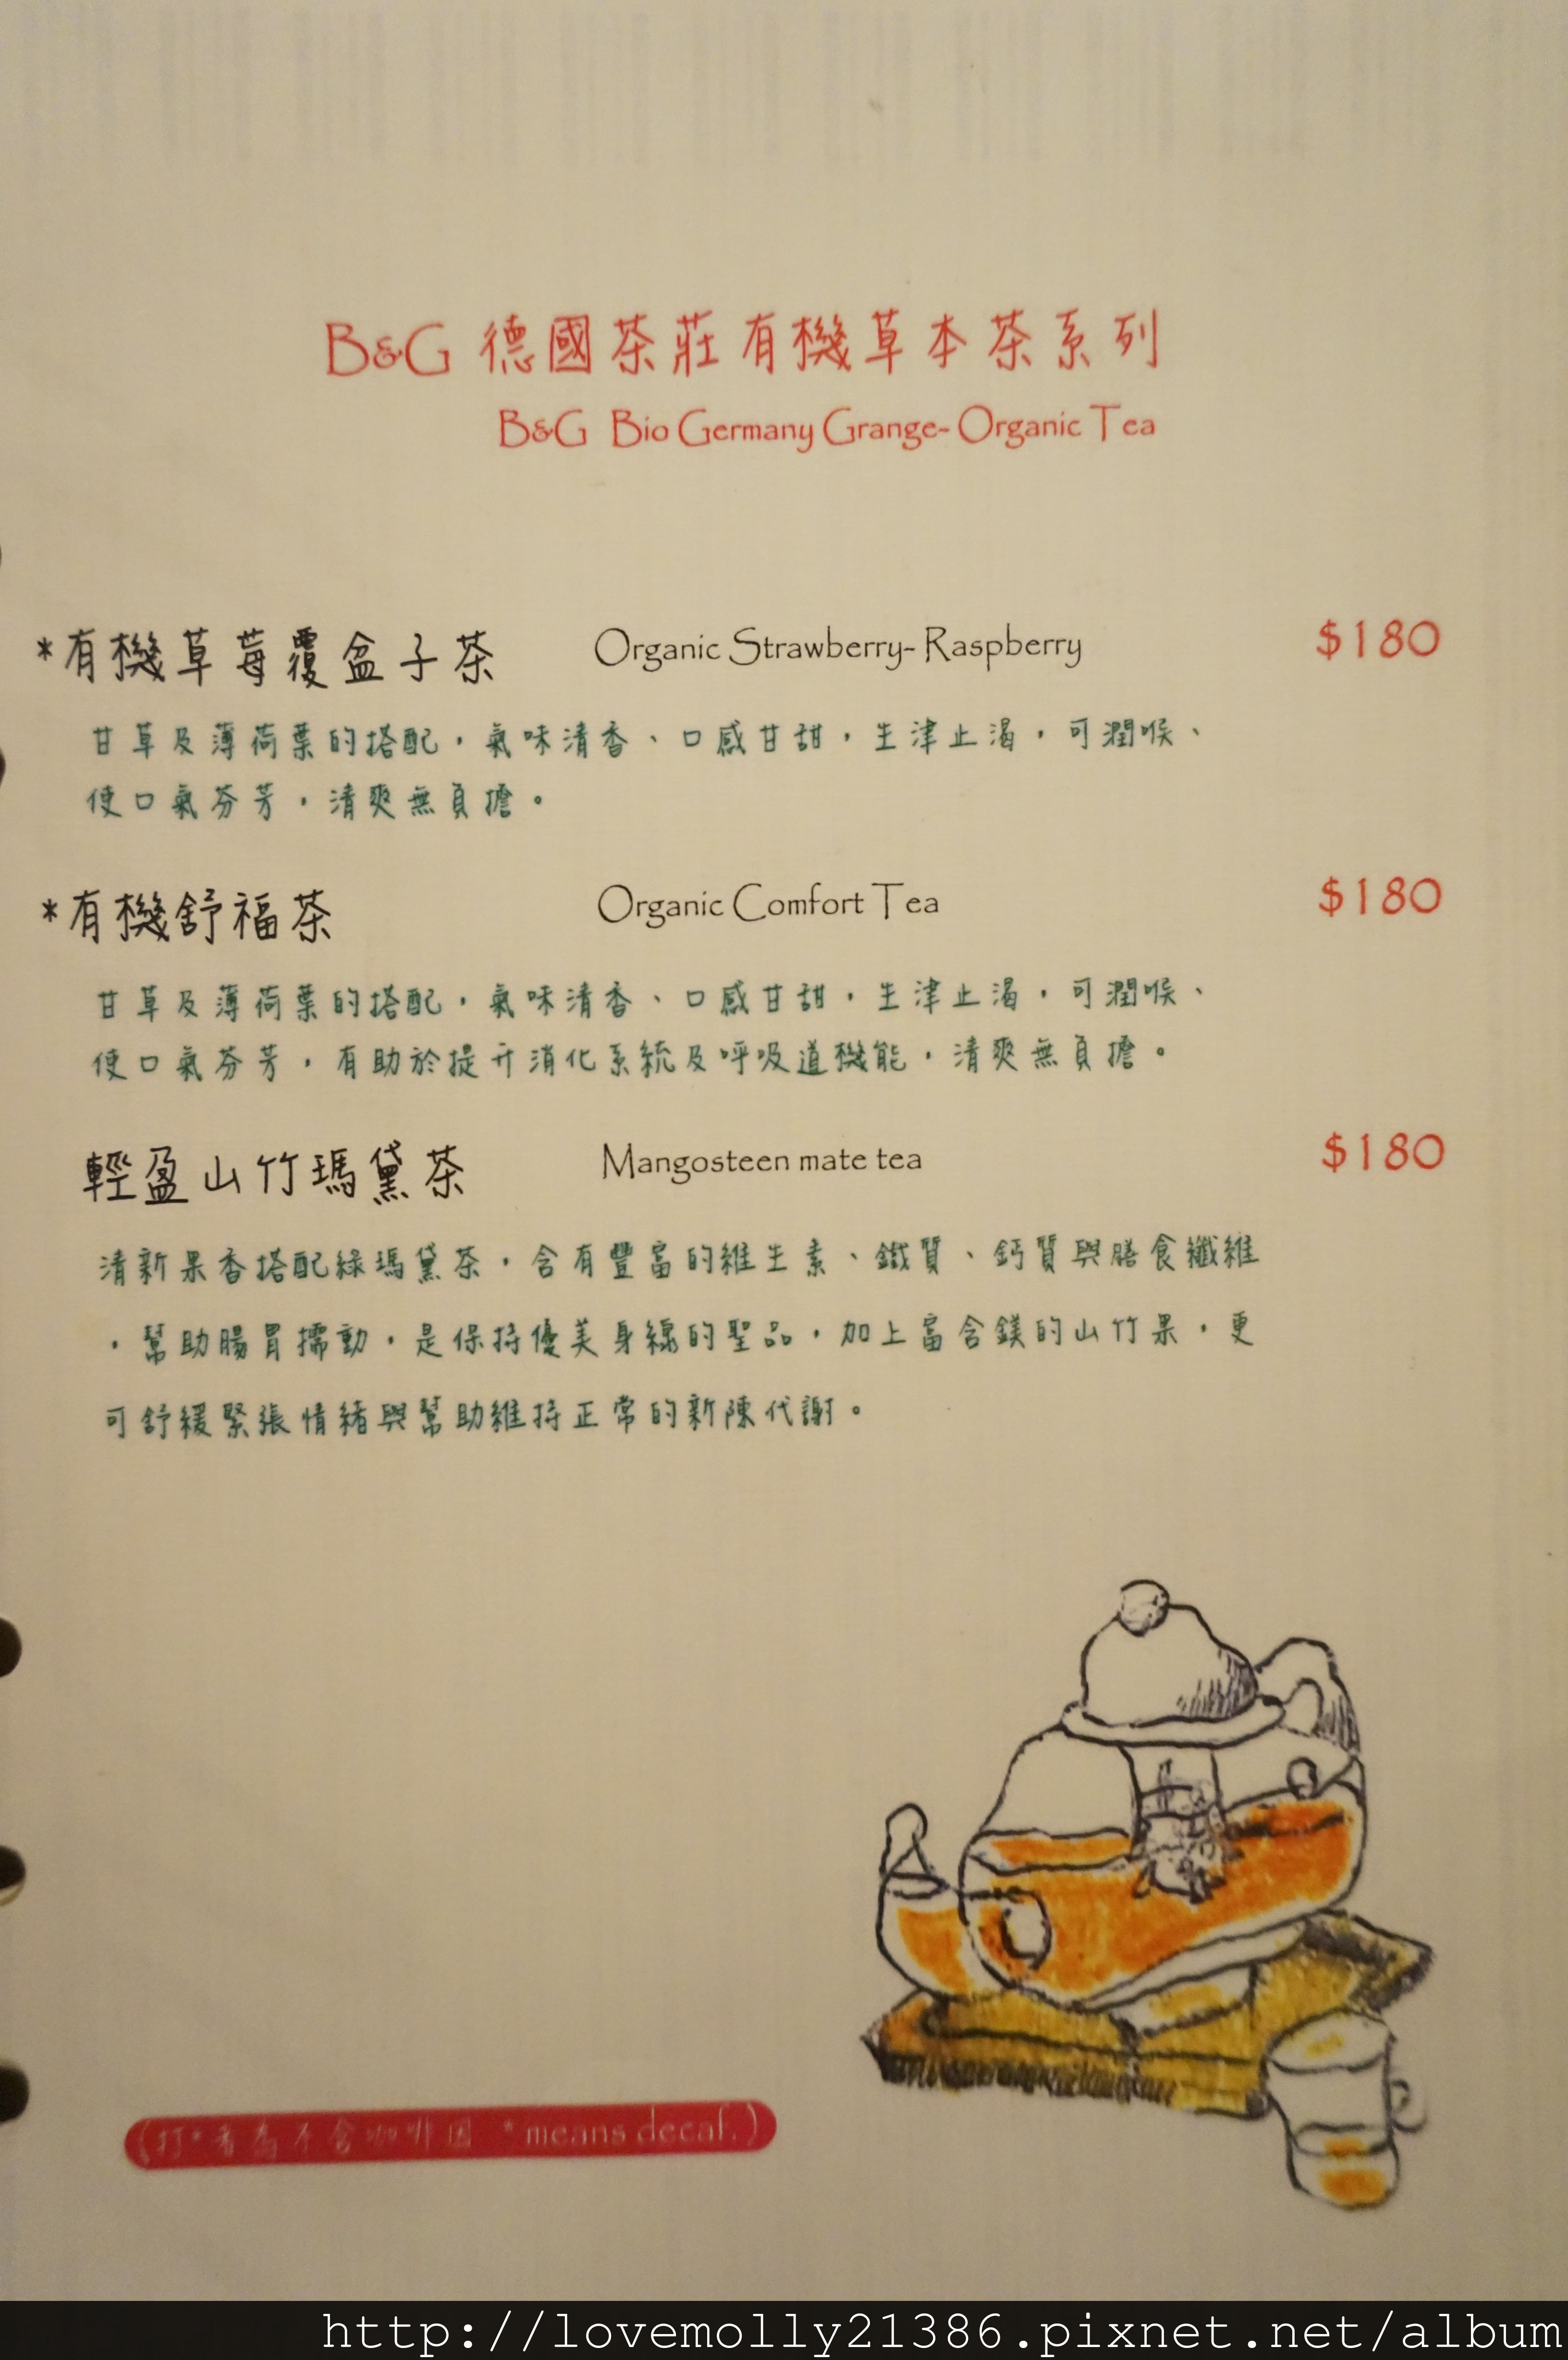 B&G 德國茶莊有機草本茶系列
B&G Bio Germany Grange- Organic Tea
*有機草莓覆盆子茶 Organic Strawberry- Raspberry $180
甘草及薄荷葉的搭配，氣味清香、口感甘甜，生津止渴，可潤喉、
使口氣芬芳，清爽無負擔。
*有機舒福茶 Organic Comfort Tea $180
甘草及薄荷葉的搭配，氣味清香、口感甘甜，生津止渴，可潤喉、
使口氣芬芳，有助於提升消化系統及呼吸道機能，清爽無負擔。
輕盈山竹瑪黛茶 Mangosteen mate tea $180
清新果香搭配綠瑪黛茶，含有豐富的維生素、鐵質、鈣質與膳食纖維
，幫助腸胃擂動，是保持優美身線的聖品，加上富含鎂的山竹果，更
可舒緩緊張情緒與幫助維持正常的新陳代謝。
(打*者為不含咖啡因 *means decaf.)
http://lovemolly21386.pixnet.net/album